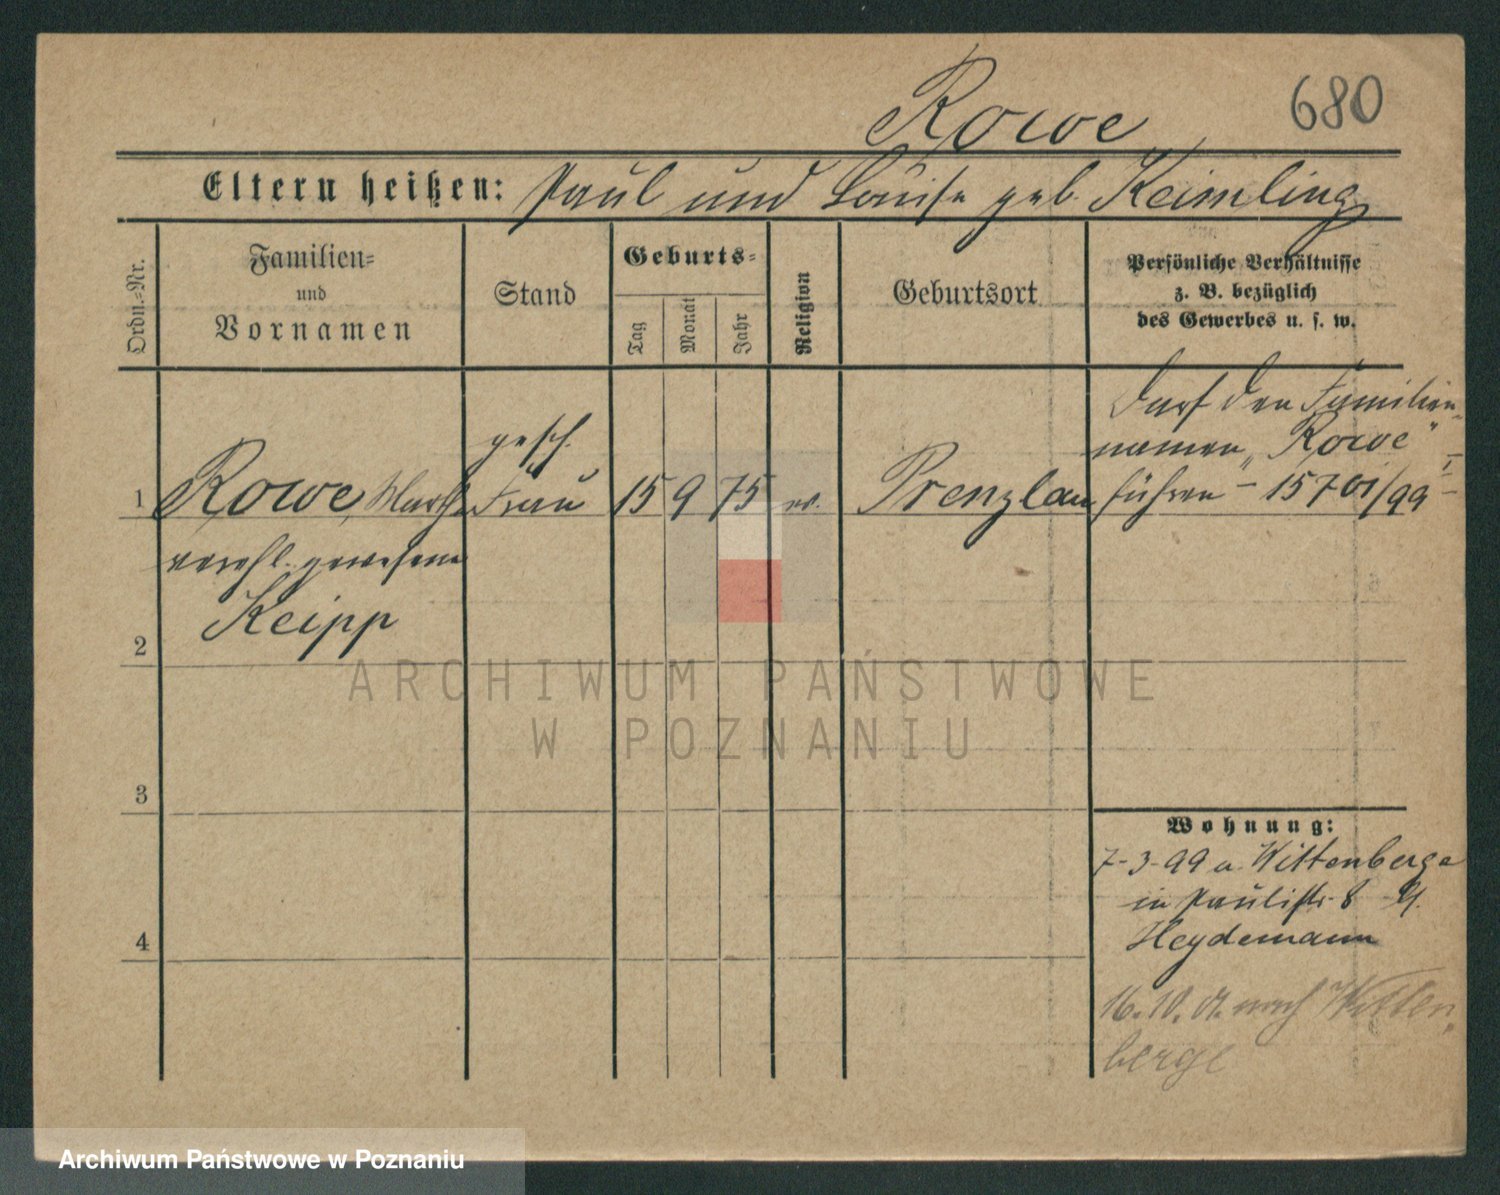 Rowe
680
Eltern heißen: Paul und Louise geb. Keimling
Ordn.-Nr.
Familien=
und
Vornamen
Stand
Geburts=
Tag
Monat
Jahr
Religion
Geburtsort
Persönliche Verhältnisse
z. B. bezüglich
des Gewerbes u. s. w.
Darf den Familien-
namen „Rowe“
führen – 1570 /99 –
gesch.
1 Rowe, Martha Frau 15 9 75 ev. Prenzlau
verehl. gewesene
Keipp
2
3
4
Wohnung:
7-3-99 a. Wittenberge
in Paulistr. 8
Heydemann
16. 10. nach Witten
berge
ARCHIWUM PAŃSTWOWE
W POZNANIU
Archiwum Państwowe w Poznaniu